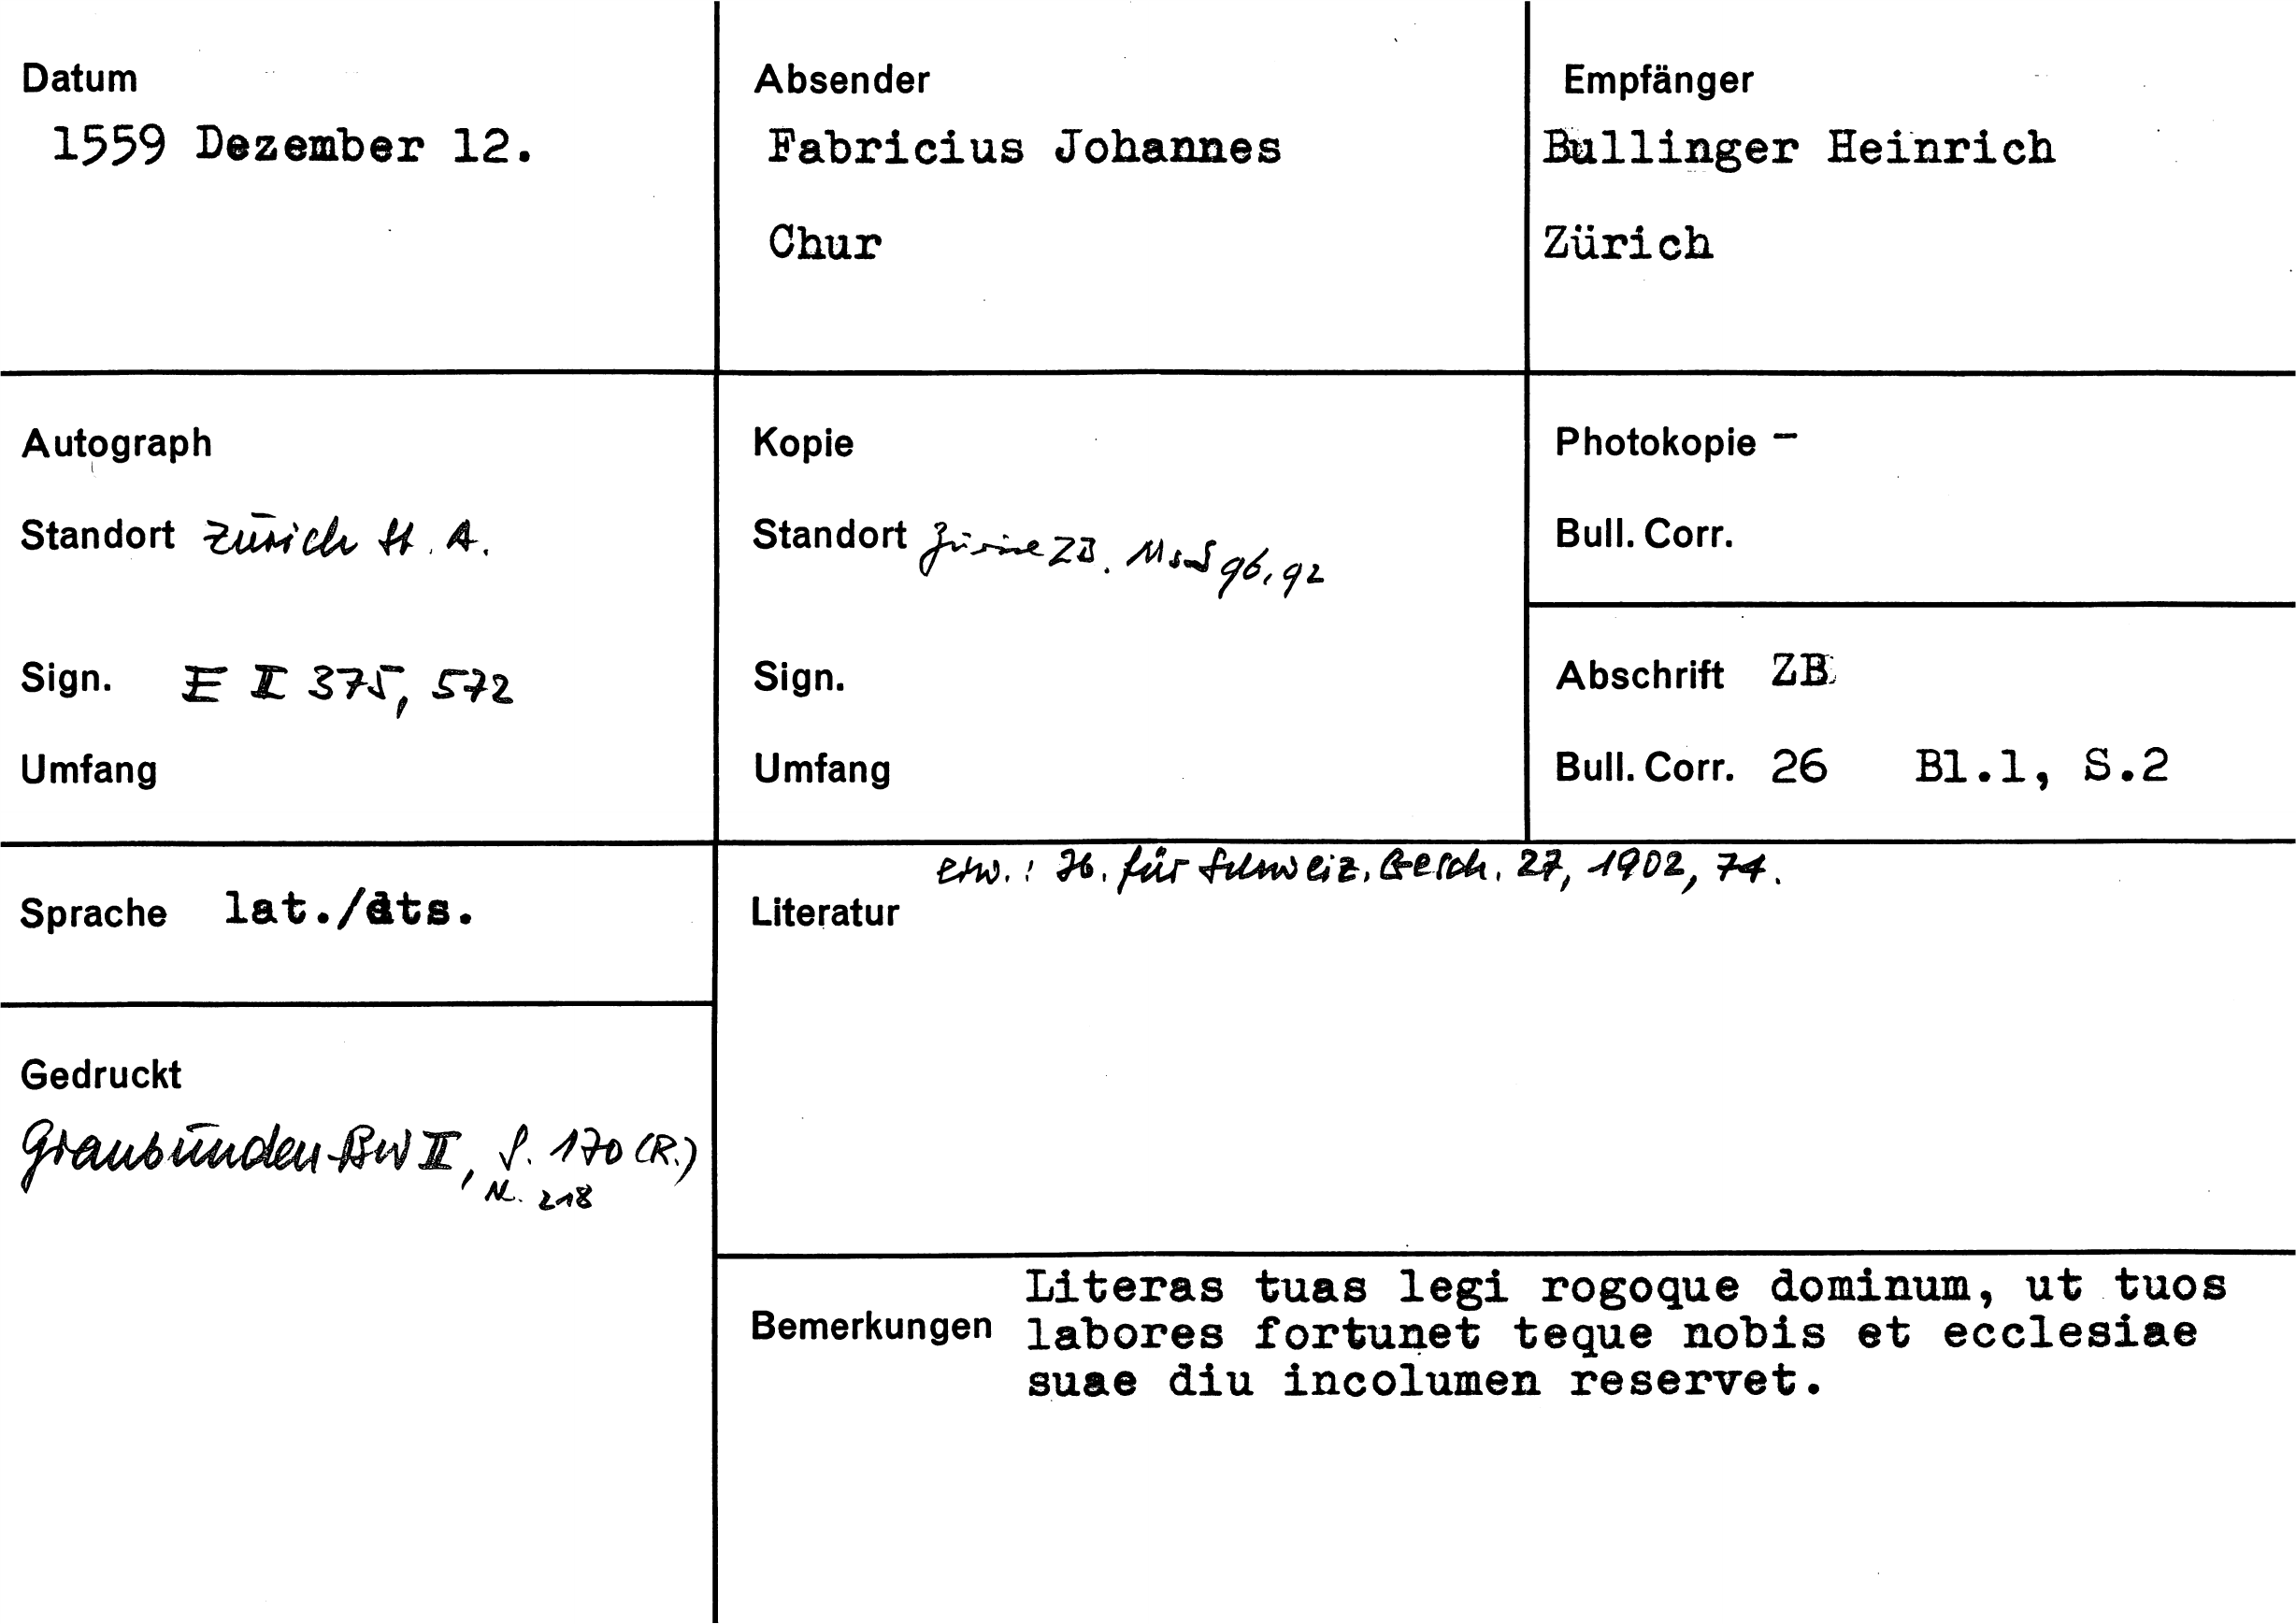 Datum
1559 Dezember 12.
Absender
Fabricius Johannes
Chur
Empfänger
Bullinger Heinrich
Zürich
Autograph
Standort Zürich St. A.
Sign. E II 375, 572
Umfang
Kopie
Standort Zürich ZB. Ms S 96, 92
Sign.
Umfang
Photokopie –
Bull. Corr.
Abschrift ZB
Bull. Corr. 26 Bl.1, S.2
Sprache lat./dts.
Gedruckt
Graubünden-BW II, S. 170 (R.)
Nr. 218
erw.: Jb. für Schweiz. Gesch. 27, 1902, 74.
Literatur
Bemerkungen
Literas tuas legi rogoque dominum, ut tuos
labores fortunet teque nobis et ecclesiae
suae diu incolumen reservet.